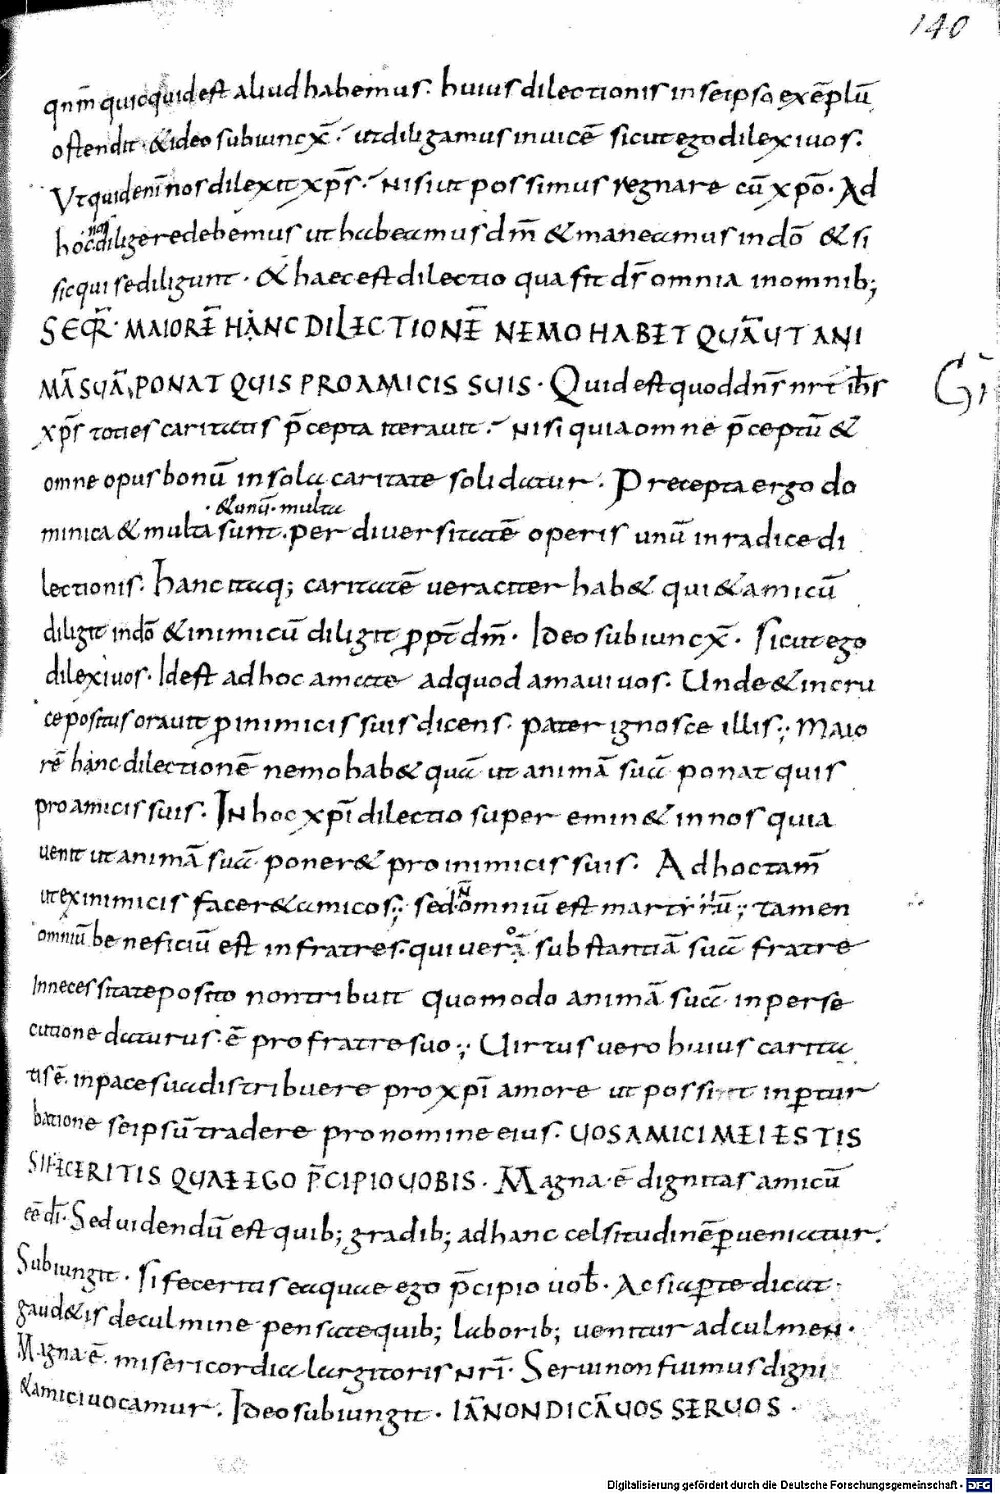 140
qnm̄ quicquid est aliud habemus. huius dilectionis in se ipso exēplū
ostendit. & ideo subiuncx̄. ut diligamus inuicē sicut ego dilexi uos.
Vt quid enī nos dilexit xp̄s. Nisi ut possimus regnare cū xp̄o. Ad
nos
hoc diligere debemus ut habeamus dm̄ & maneamus in dō & si
sic qui se diligunt. & haec est dilectio qua fit dr̄ omnia in omnib;
SEQR̄. MAIORĒ HANC DILECTIONĒ NEMO HABET QUĀ UT ANI
MĀ SUĀ PONAT QUIS PRO AMICIS SUIS. Quid est quod dn̄s nr̄i ih̄s
Gī
xp̄s toties caritatis p̄cepta iterauit. Nisi quia omne p̄ceptū &
omne opus bonū in sola caritate solidatur. Precepta ergo do
. & unū. multa
minica & multa sunt. per diuersitatē operis unū in radice di
lectionis. Hanc itaq; caritatē ueraciter hab& qui & amicū
diligit in dō & inimicū diligit ppt̄ dm̄. Ideo subiuncx̄. Sicut ego
dilexi uos. Id est ad hoc amate ad quod amaui uos. Unde & in cru
ce positus orauit p inimicis suis dicens. pater ignosce illis; Maio
rē hanc dilectionē nemo hab& quā ut animā suā ponat quis
pro amicis suis. In hoc xp̄i dilectio super emin& in nos quia
uenit ut animā suā poner& pro inimicis suis. Ad hoc tam̄
ut ex inimicis facer& amicos; sed omniū est martyrū; tamen
omniū beneficiū est in fratres. qui uero suam̄ substantiā suā fratre
In necessitate posito non tribuit quomodo animā suā in perse
cutione daturus. ē pro fratre suo; Uirtus uero huius carita
tis ē. in pace sua distribuere pro xp̄i amore ut possint in ptur
batione se ipsū tradere pro nomine eius. UOS AMICI MEI ESTIS
SI FECERITIS QUAE EGO P̄CIPIO UOBIS. Magna ē dignitas amicū
eē dī. Sed uidendū est quib; gradib; ad hanc celsitudinē pueniatur.
Subiungit. Si feceritis ea quae ego p̄cipio uob̄. Ac si apte dicat.
gaud&is de culmine pensate quib; laborib; uenitur ad culmen.
Magna ē. misericordia largitoris nr̄i. Serui non fuimus digni
& amici uocamur. Ideo subiungit. IĀ NON DICĀ UOS SERUOS.
Digitalisierung gefördert durch die Deutsche Forschungsgemeinschaft - DFG